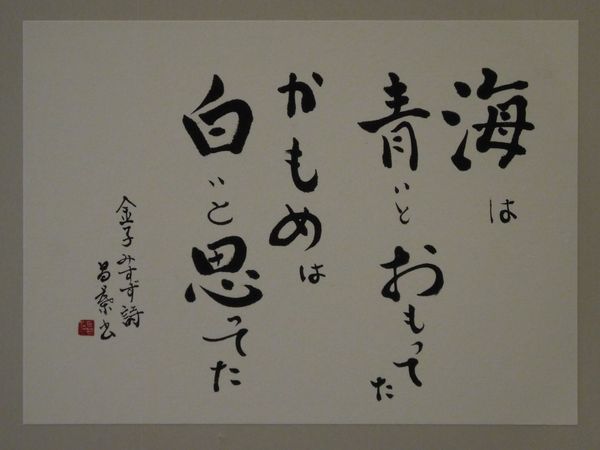 海は
青いとおもってた
かもめは
白いと思ってた
金子みすず詩